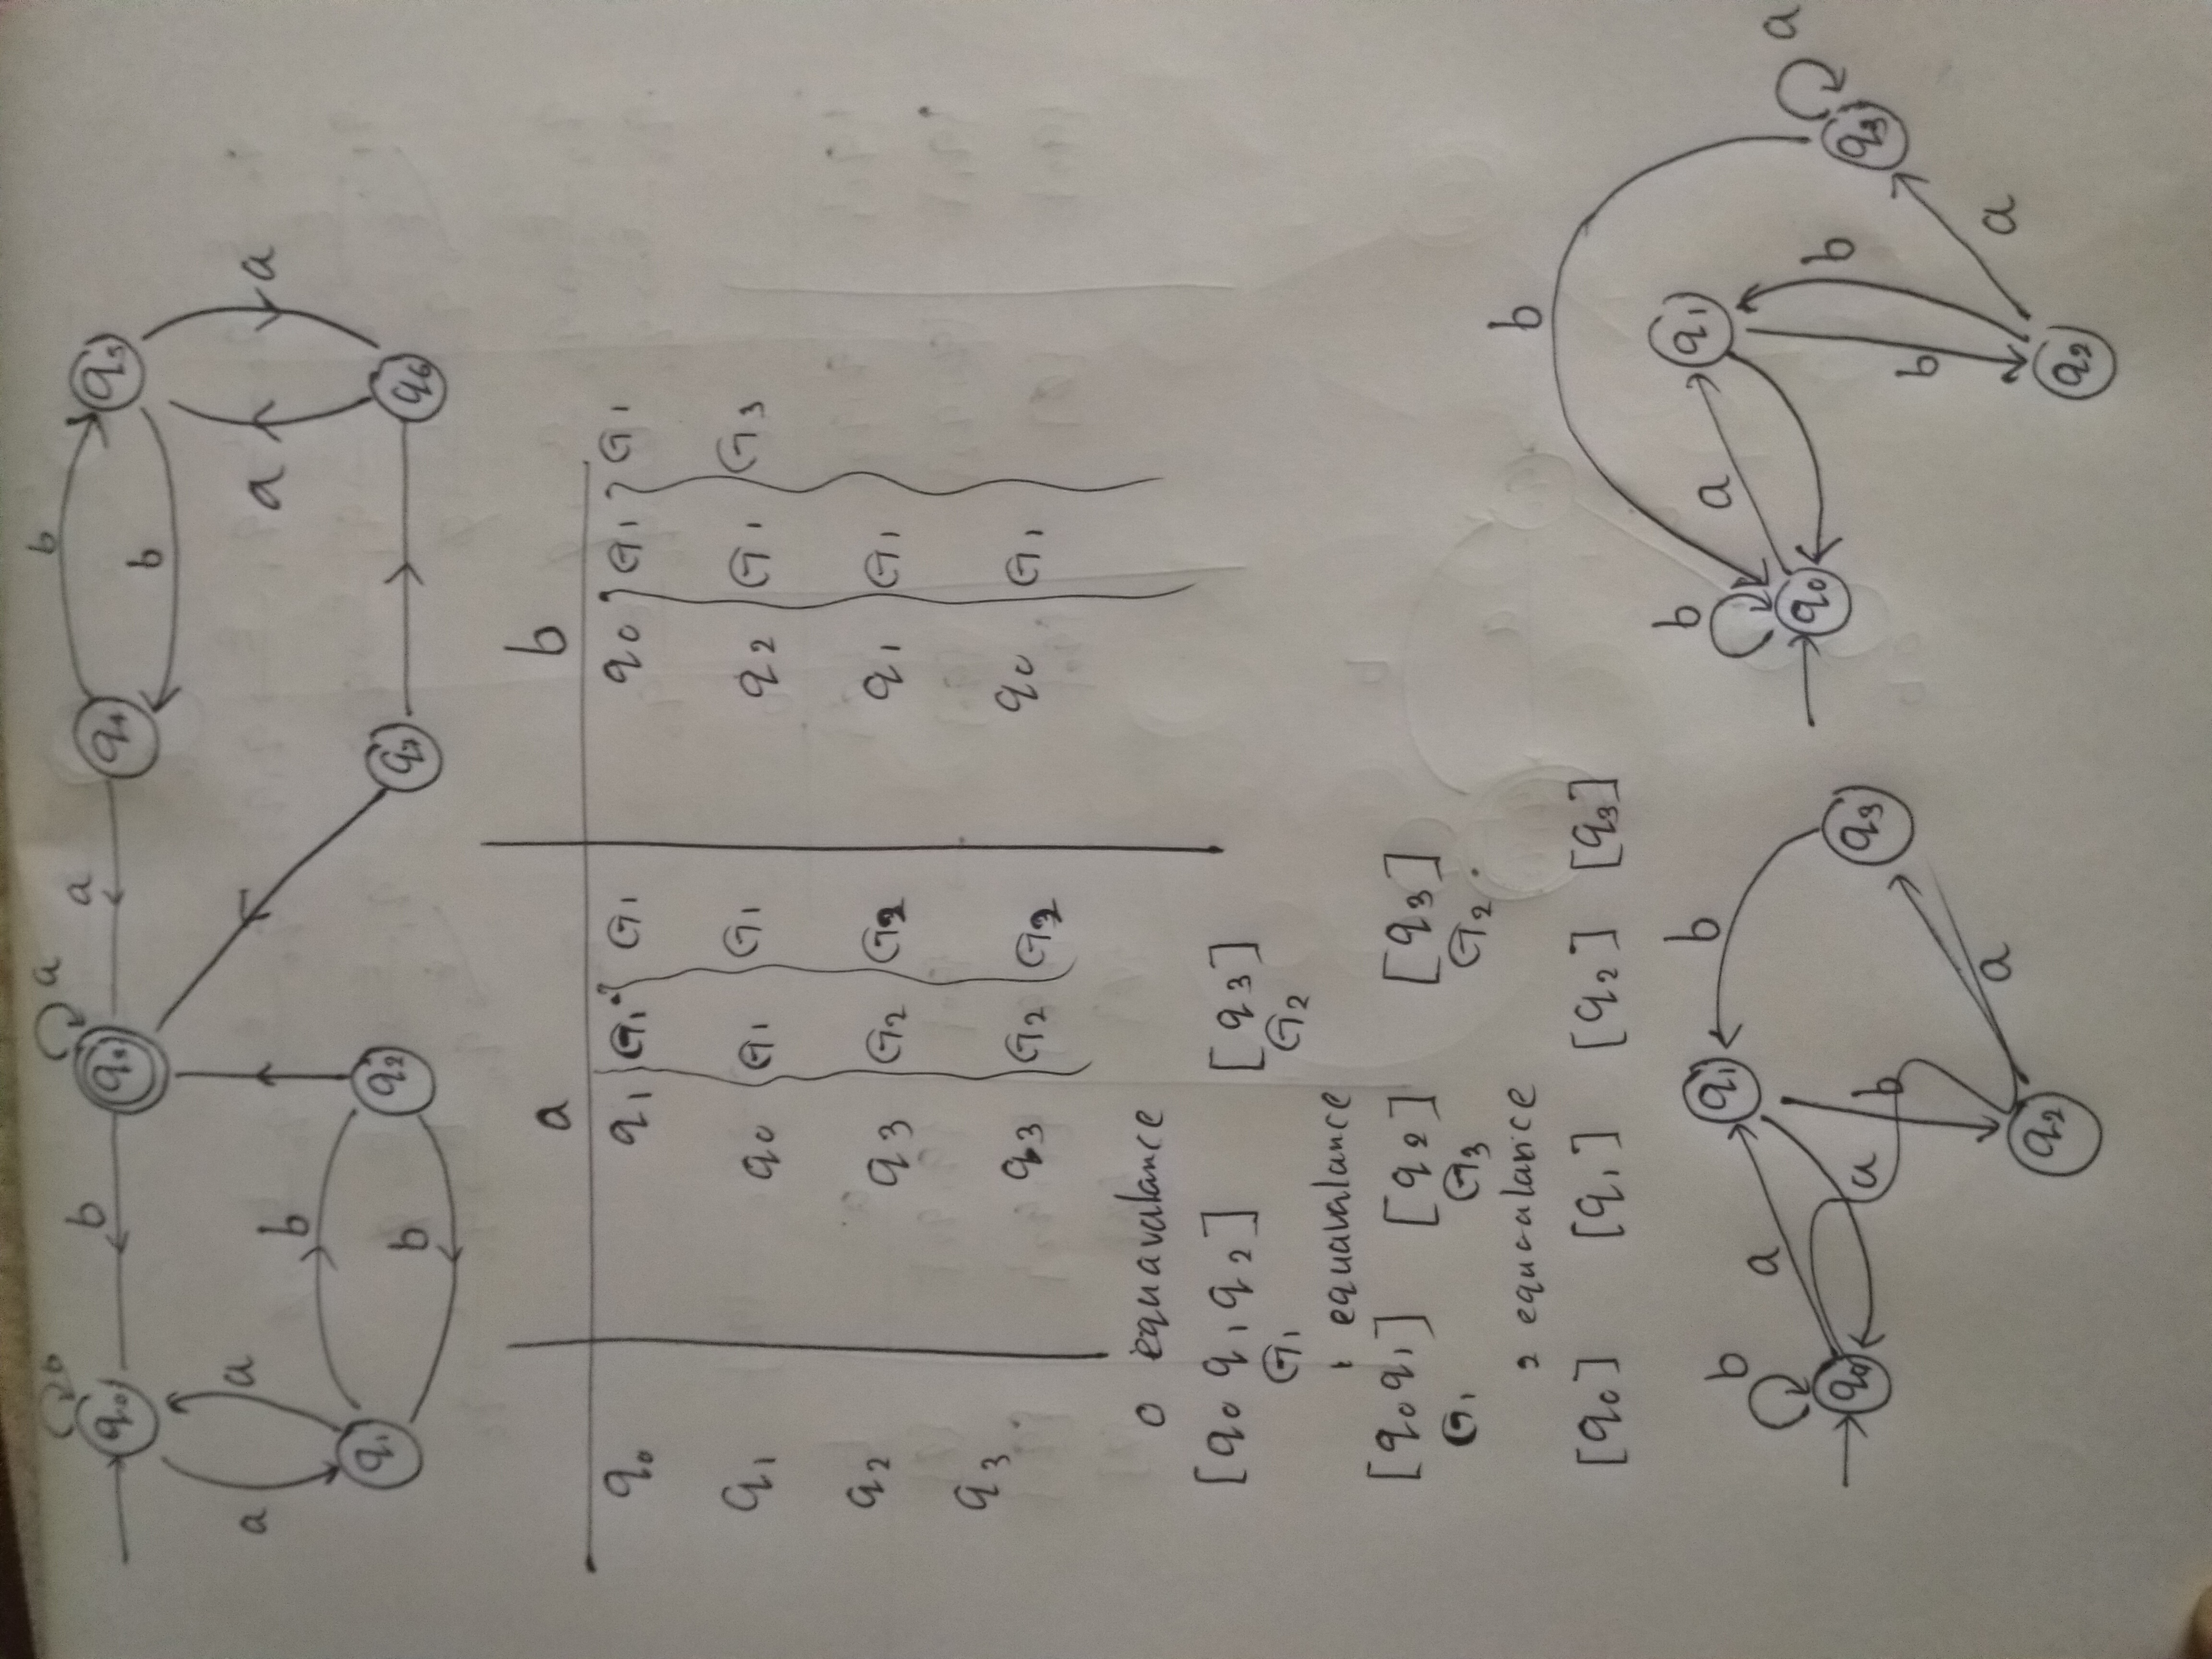 b a b
q0 b q3 a q4 q5
b
a a a a
b
q1 q2 q7 q6
b
a b
q0 q1 G1 G1 q0 G1 G1
q1 q0 G1 G1 q2 G1 G3
q2 q3 G2 G2 q1 G1
q3 q3 G2 G2 q0 G1
0 equavalance
[q0 q1 q2] [q3]
G1 G2
1 equavalance
[q0 q1] [q2] [q3]
G1 G3 G2
2 equavalance
[q0] [q1] [q2] [q3]
b a q1 b
q0 a b q3
q2 a
b
b a q1
q0 b q3 a
b
q2 a